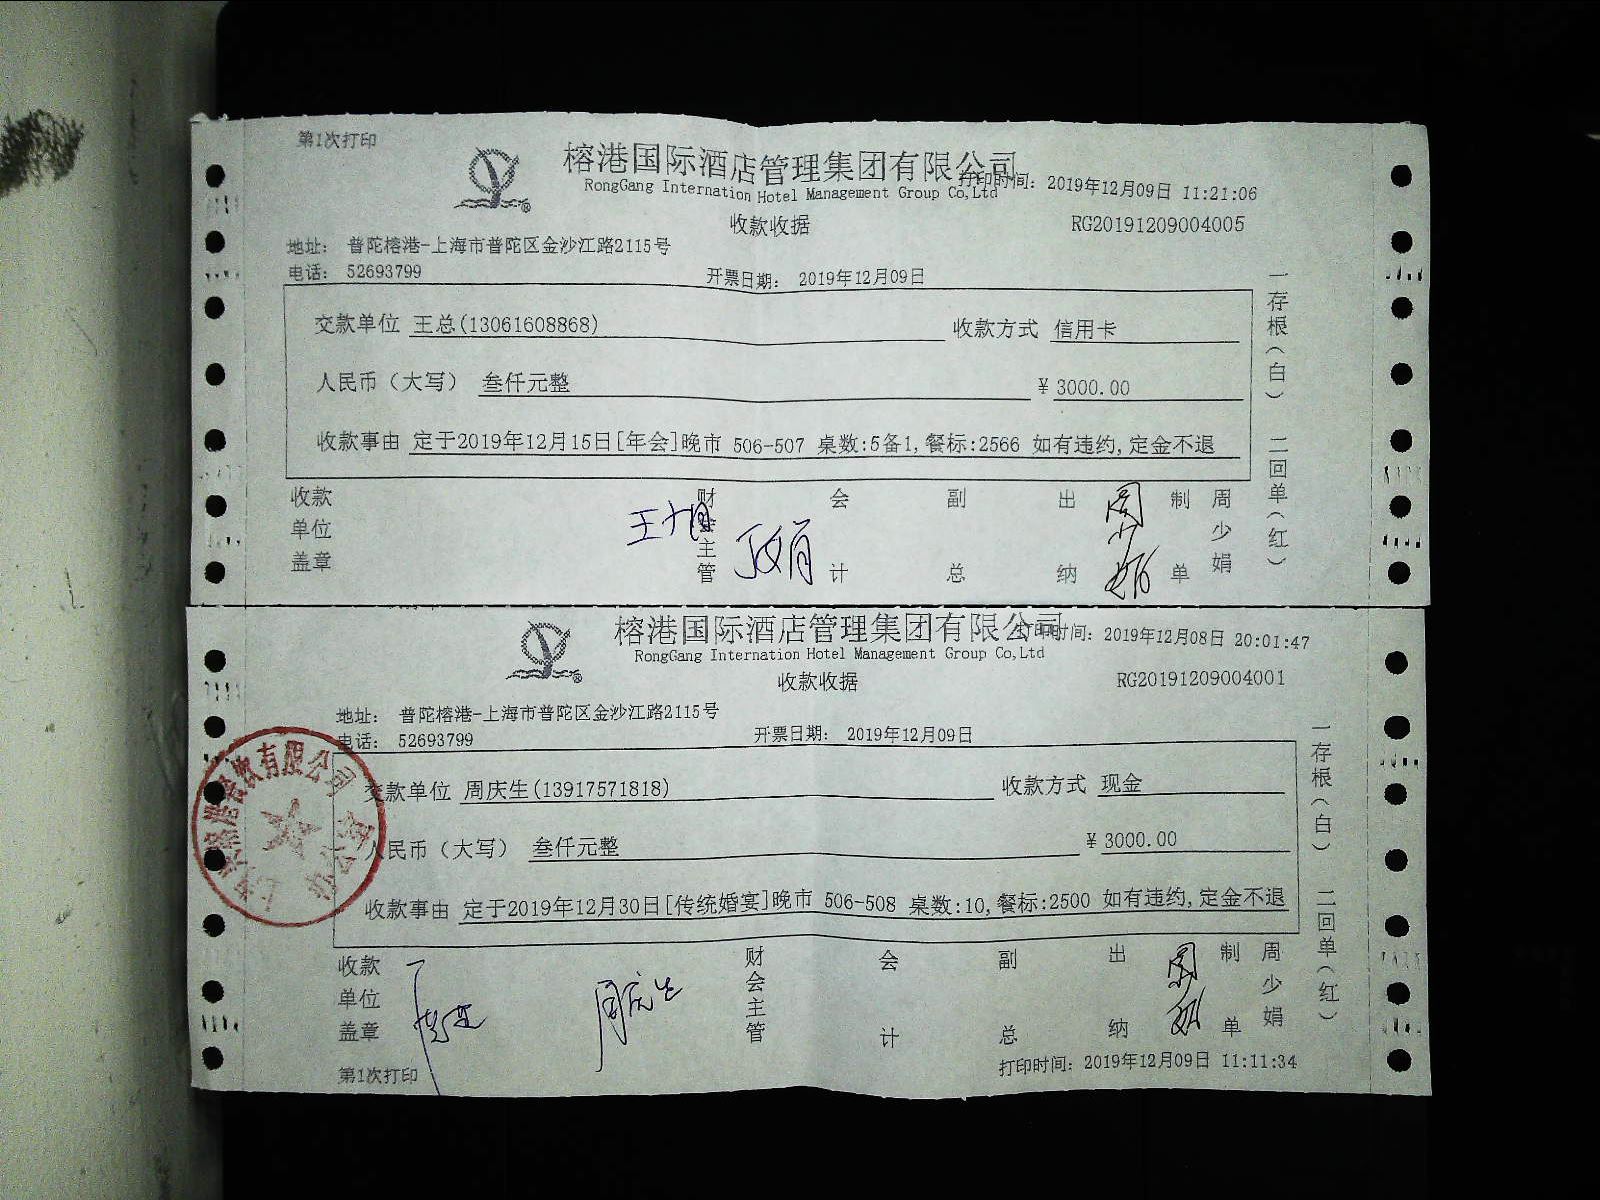 第1次打印
榕港国际酒店管理集团有限公司
RongGang Internation Hotel Management Group Co,Ltd
打印时间: 2019年12月09日 11:21:06
收款收据
RG20191209004005
地址: 普陀榕港-上海市普陀区金沙江路2115号
电话: 52693799
开票日期: 2019年12月09日
交款单位 王总(13061608868) 收款方式 信用卡
人民币(大写) 叁仟元整 ¥3000.00
收款事由 定于2019年12月15日[年会]晚市 506-507 桌数:5备1,餐标:2566 如有违约,定金不退
一存根(白) 二回单(红)
收款单位盖章 财会主管 会计 副总 出纳 周少娟 制单 周少娟
榕港国际酒店管理集团有限公司
RongGang Internation Hotel Management Group Co,Ltd
打印时间: 2019年12月08日 20:01:47
收款收据
RG20191209004001
地址: 普陀榕港-上海市普陀区金沙江路2115号
电话: 52693799
开票日期: 2019年12月09日
交款单位 周庆生(13917571818) 收款方式 现金
人民币(大写) 叁仟元整 ¥3000.00
收款事由 定于2019年12月30日[传统婚宴]晚市 506-508 桌数:10,餐标:2500 如有违约,定金不退
一存根(白) 二回单(红)
收款单位盖章 周庆生 财会主管 会计 副总 出纳 制单 周少娟
第1次打印
打印时间: 2019年12月09日 11:11:34